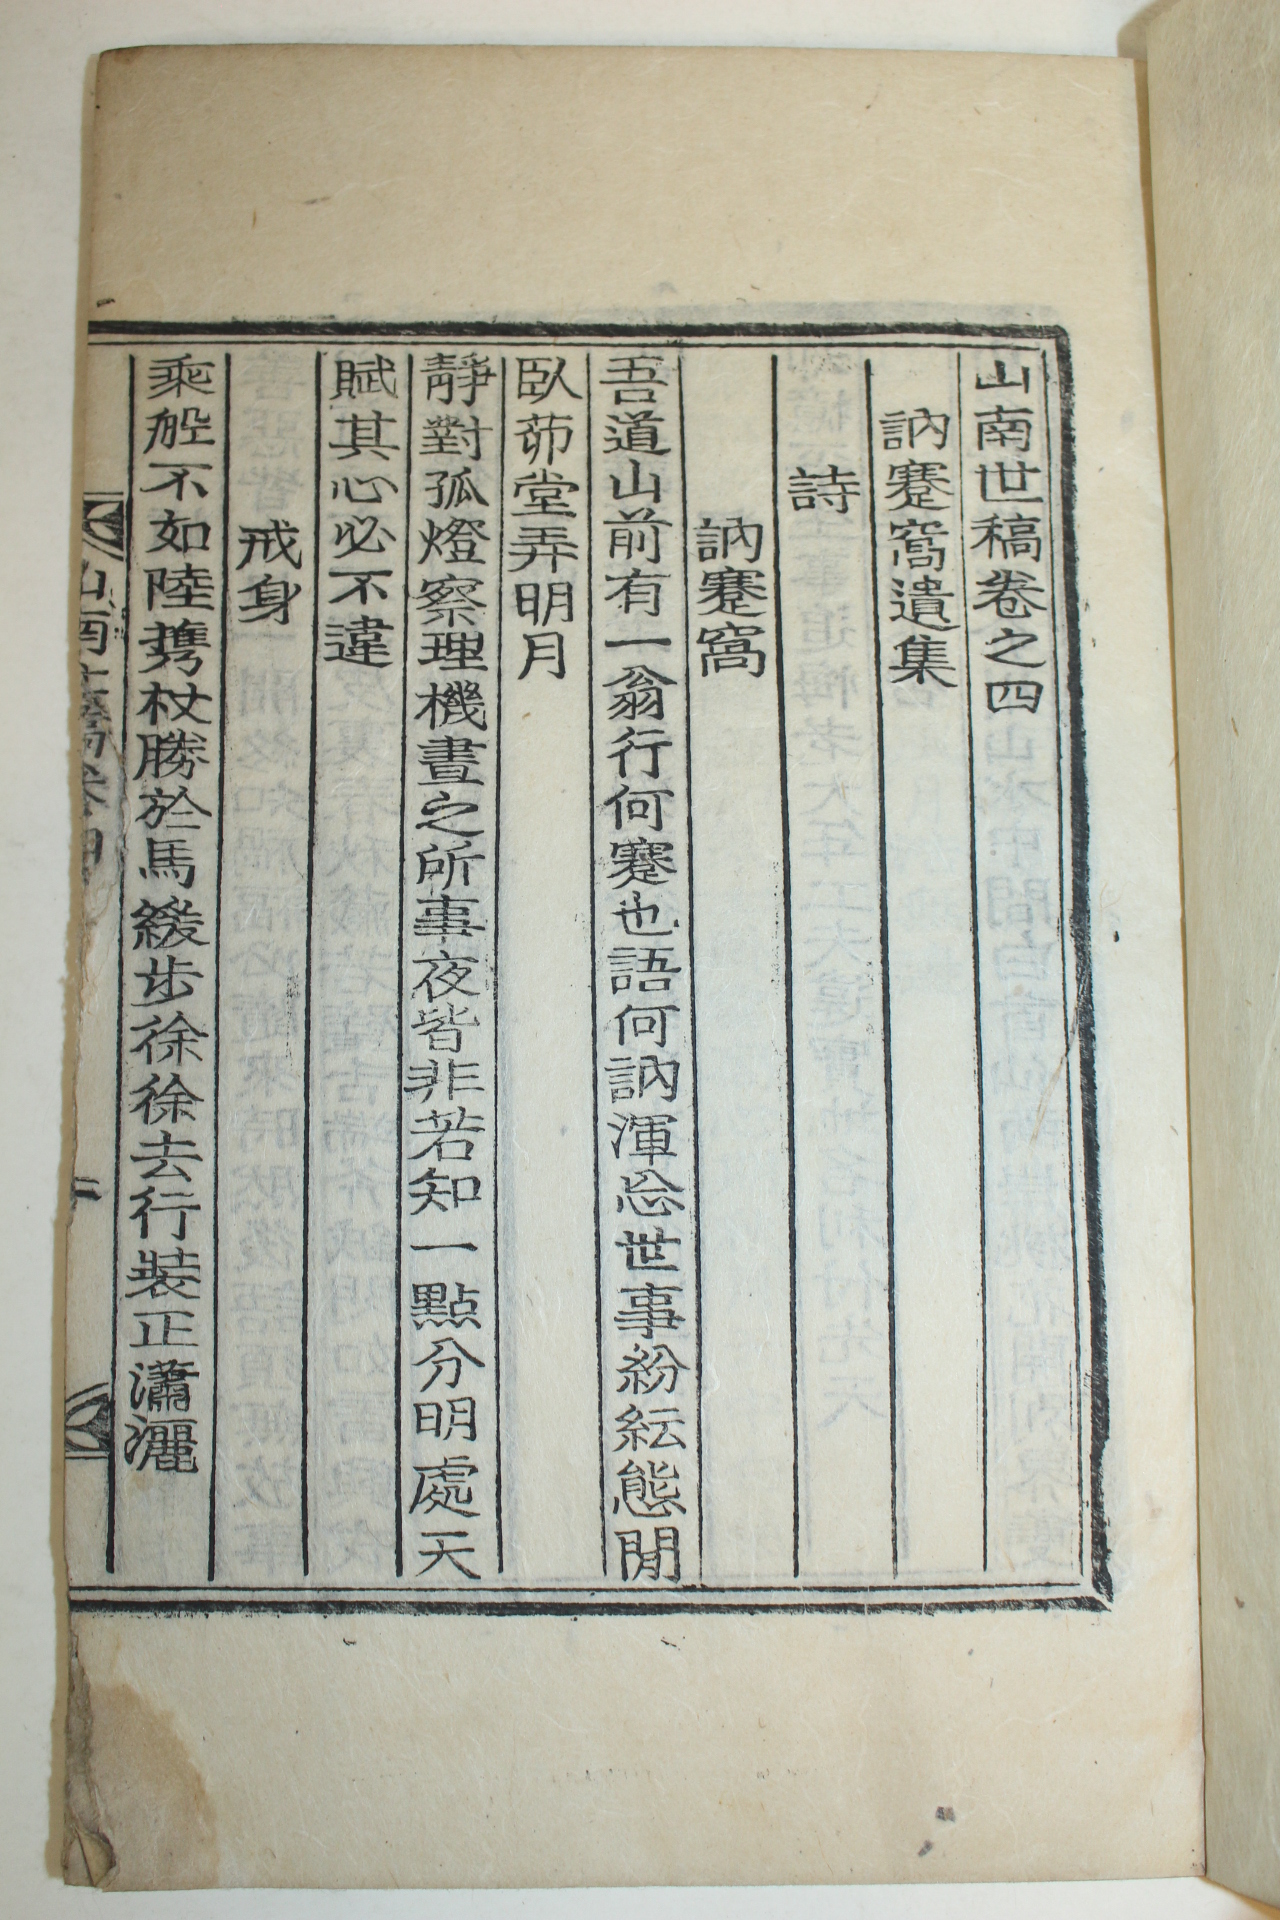 山南世稿卷之四
訥蹇窩遺集
詩
訥蹇窩
吾道山前有一翁行何蹇也語何訥渾忘世事紛紜態閒
臥茆堂弄明月
靜對孤燈察理機晝之所事夜皆非若知一點分明處天
賦其心必不違
戒身
乘舩不如陸携杖勝於馬緩步徐徐去行裝正瀟灑
山南世稿卷四
一